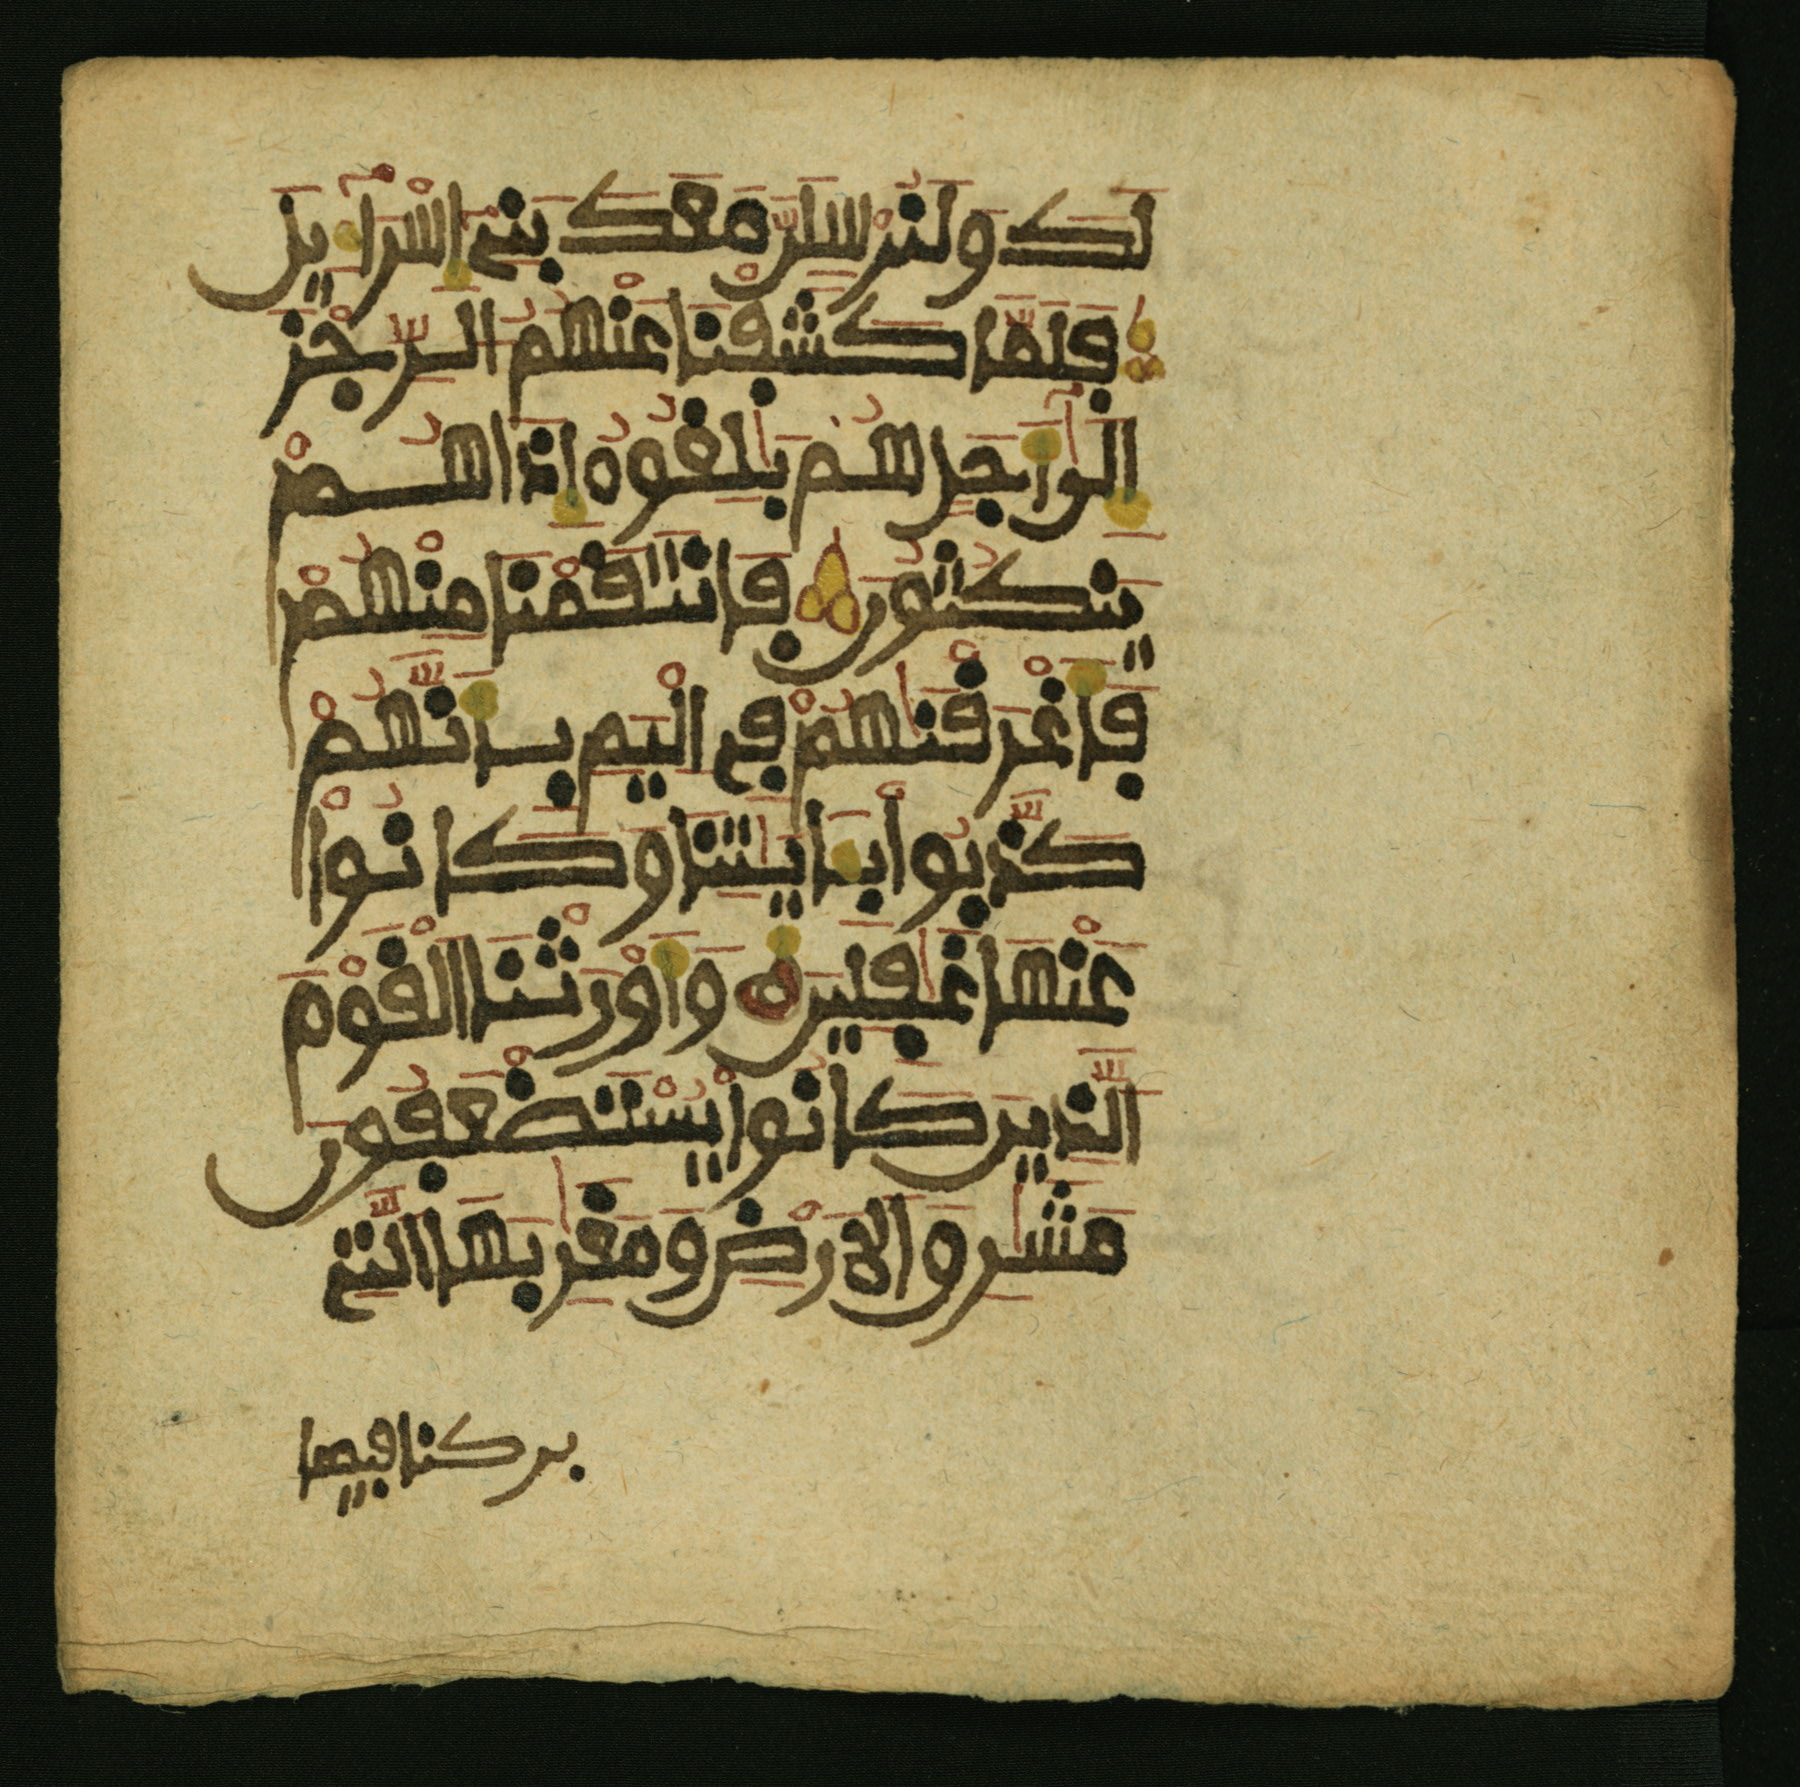 لَكَ وَلَنُرْسِلَنَّ مَعَكَ بَنِے إِسْرَآءِيلَ
فَلَمَّا كَشَفْنَا عَنْهُمُ الرِّجْزَ
إِلَىٰٓ أَجَلٍ هُم بَٰلِغُوهُ إِذَا هُمْ
يَنكُثُونَ فَانتَقَمْنَا مِنْهُمْ
فَأَغْرَقْنَٰهُمْ فِے الْيَمِّ بِأَنَّهُمْ
كَذَّبُواْ بِـَٔايَٰتِنَا وَكَانُواْ
عَنْهَا غَٰفِلِينَ وَأَوْرَثْنَا الْقَوْمَ
الَّذِينَ كَانُواْ يُسْتَضْعَفُونَ
مَشَٰرِقَ الْأَرْضِ وَمَغَٰرِبَهَا الَّتِے
بركنا فيها